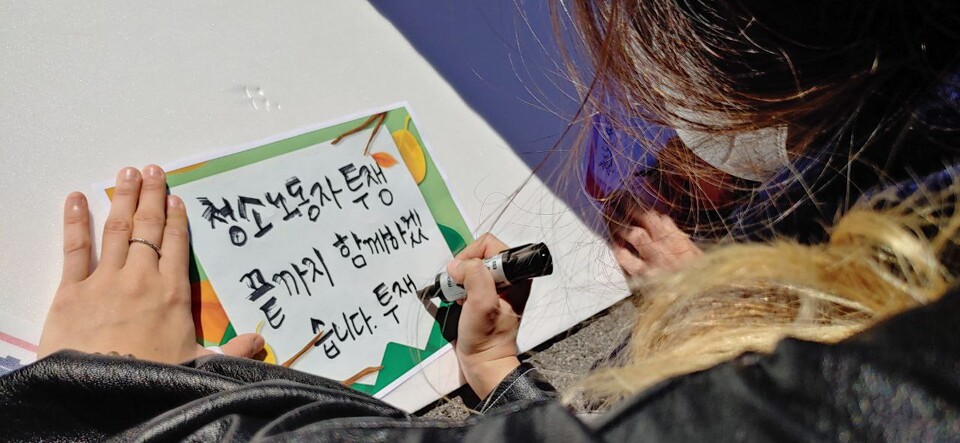 청소노동자 투쟁
끝까지 함께하겠
습니다. 투재